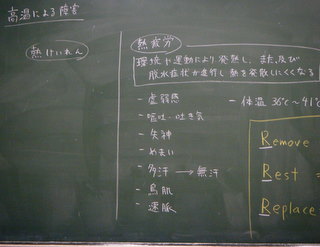 高温による障害
熱けいれん
熱疲労
環境や運動により発熱し、また、及び
脱水症状が進行し熱を発散しにくくなる
- 虚弱感
- 嘔吐・吐き気
- 失神
- めまい
- 多汗 → 無汗
- 鳥肌
- 速脈
- 体温 36℃～41℃
Remove
Rest =
Replace